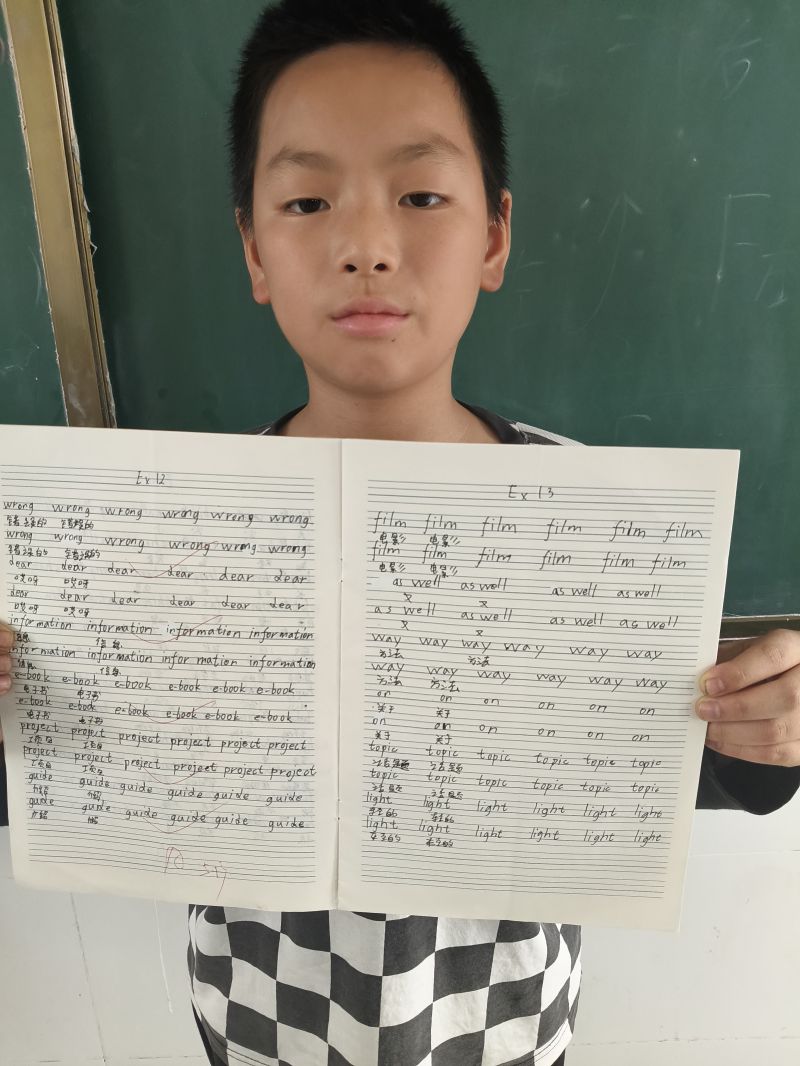 Ex 12
wrong wrong wrong wrong wrong wrong
错误的 错误的
wrong wrong wrong wrong wrong wrong
错误的 错误的
dear dear dear dear dear dear
哎呀 哎呀
dear dear dear dear dear dear
哎呀 哎呀
information information information information
信息 信息
information information information information
信息 信息
e-book e-book e-book e-book e-book e-book
电子书 电子书
e-book e-book e-book e-book e-book e-book
电子书 电子书
project project project project project project
项目 项目
project project project project project project
项目 项目
guide guide guide guide guide guide
介绍 介绍
guide guide guide guide guide guide
介绍
Ex 13
film film film film film film
电影 电影
film film film film film film
电影 电影
as well as well as well as well
又 又
as well as well as well as well
又 又
way way way way way way
方法 方法
way way way way way way
方法 方法
on on on on on on
关于 关于
on on on on on on
关于 关于
topic topic topic topic topic topic
话题 话题
topic topic topic topic topic topic
话题 话题
light light light light light light
轻的
light light light light light light